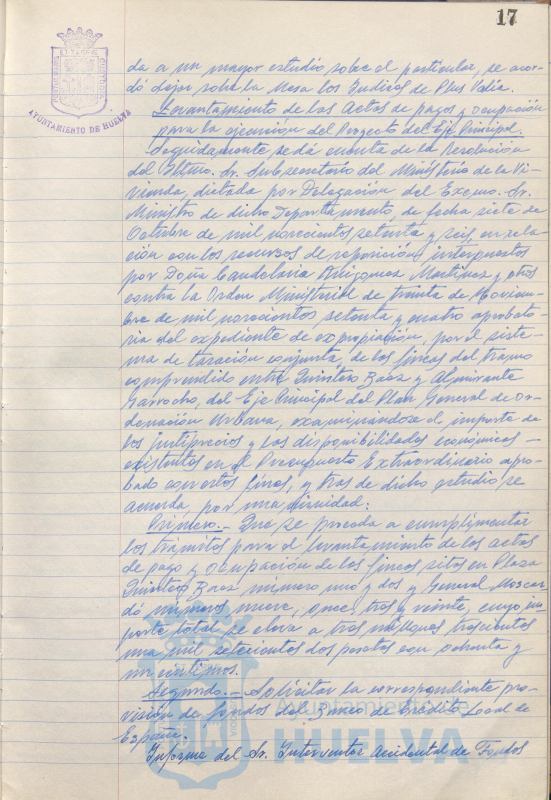 17
AYUNTAMIENTO DE HUELVA
da a un mayor estudio sobre el particular, se acor-
dó dejar sobre la Mesa los Indices de Plus Valía.
Levantamiento de las Actas de pagos y ocupación
para la ejecución del Proyecto del Eje Principal.
Seguidamente se dá cuenta de la Resolución
del Iltmo. Sr. Subsecretario del Ministerio de la Vi-
vienda, dictada por Delegación del Excmo. Sr.
Ministro de dicho Departamento, de fecha siete de
Octubre de mil novecientos setenta y seis, en rela-
ción con los recursos de reposición, interpuestos
por Doña Candelaria Martínez y otros
contra la Orden Ministerial de treinta de Noviem-
bre de mil novecientos setenta y cuatro aprobato-
ria del expediente de expropiación, por el siste-
ma de tasación conjunta, de las fincas del tramo
comprendido entre Quintero Báez y Almirante
Garrocho, del Eje Principal del Plan General de Or-
denación Urbana, examinándose el importe de
los justiprecios y las disponibilidades económicas -
existentes en el Presupuesto Extraordinario apro-
bado con estos fines, y tras de dicho estudio se
acuerda, por unanimidad:
Primero.- Que se proceda a cumplimentar
los trámites para el levantamiento de las actas
de pago y ocupación de las fincas sitas en Plaza
Quintero Báez número uno y dos y General Moscar-
dó números nueve, once, tres y veinte, cuyo im-
porte total se eleva a tres millones trescientas
una mil setecientas dos pesetas con ochenta y
un céntimos.
Segundo.- Solicitar la correspondiente pro-
visión de fondos del Banco de Crédito Local de
España.
Informe del Sr. Interventor Accidental de Fondos
Ayuntamiento de
HUELVA